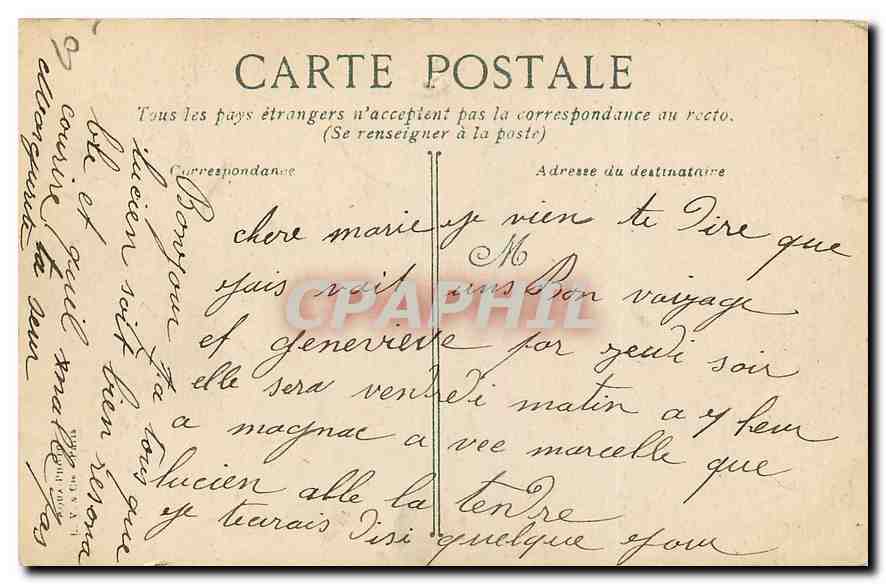 CARTE POSTALE
Tous les pays étrangers n'acceptent pas la correspondance au recto.
(Se renseigner à la poste)
Correspondance
Adresse du destinataire
chere marie je vien te dire que
M
jais vait uns Bon vaiyage
et genevieve par jeudi soir
elle sera vendredi matin a 7 heur
a magnac a vec marcelle que
lucien alle la tendre
je terais disi quelque jour
Bonjour ta tous que
lucien soit bien resona
ble et quil malle pas
courire ta seur
CPAPHIL